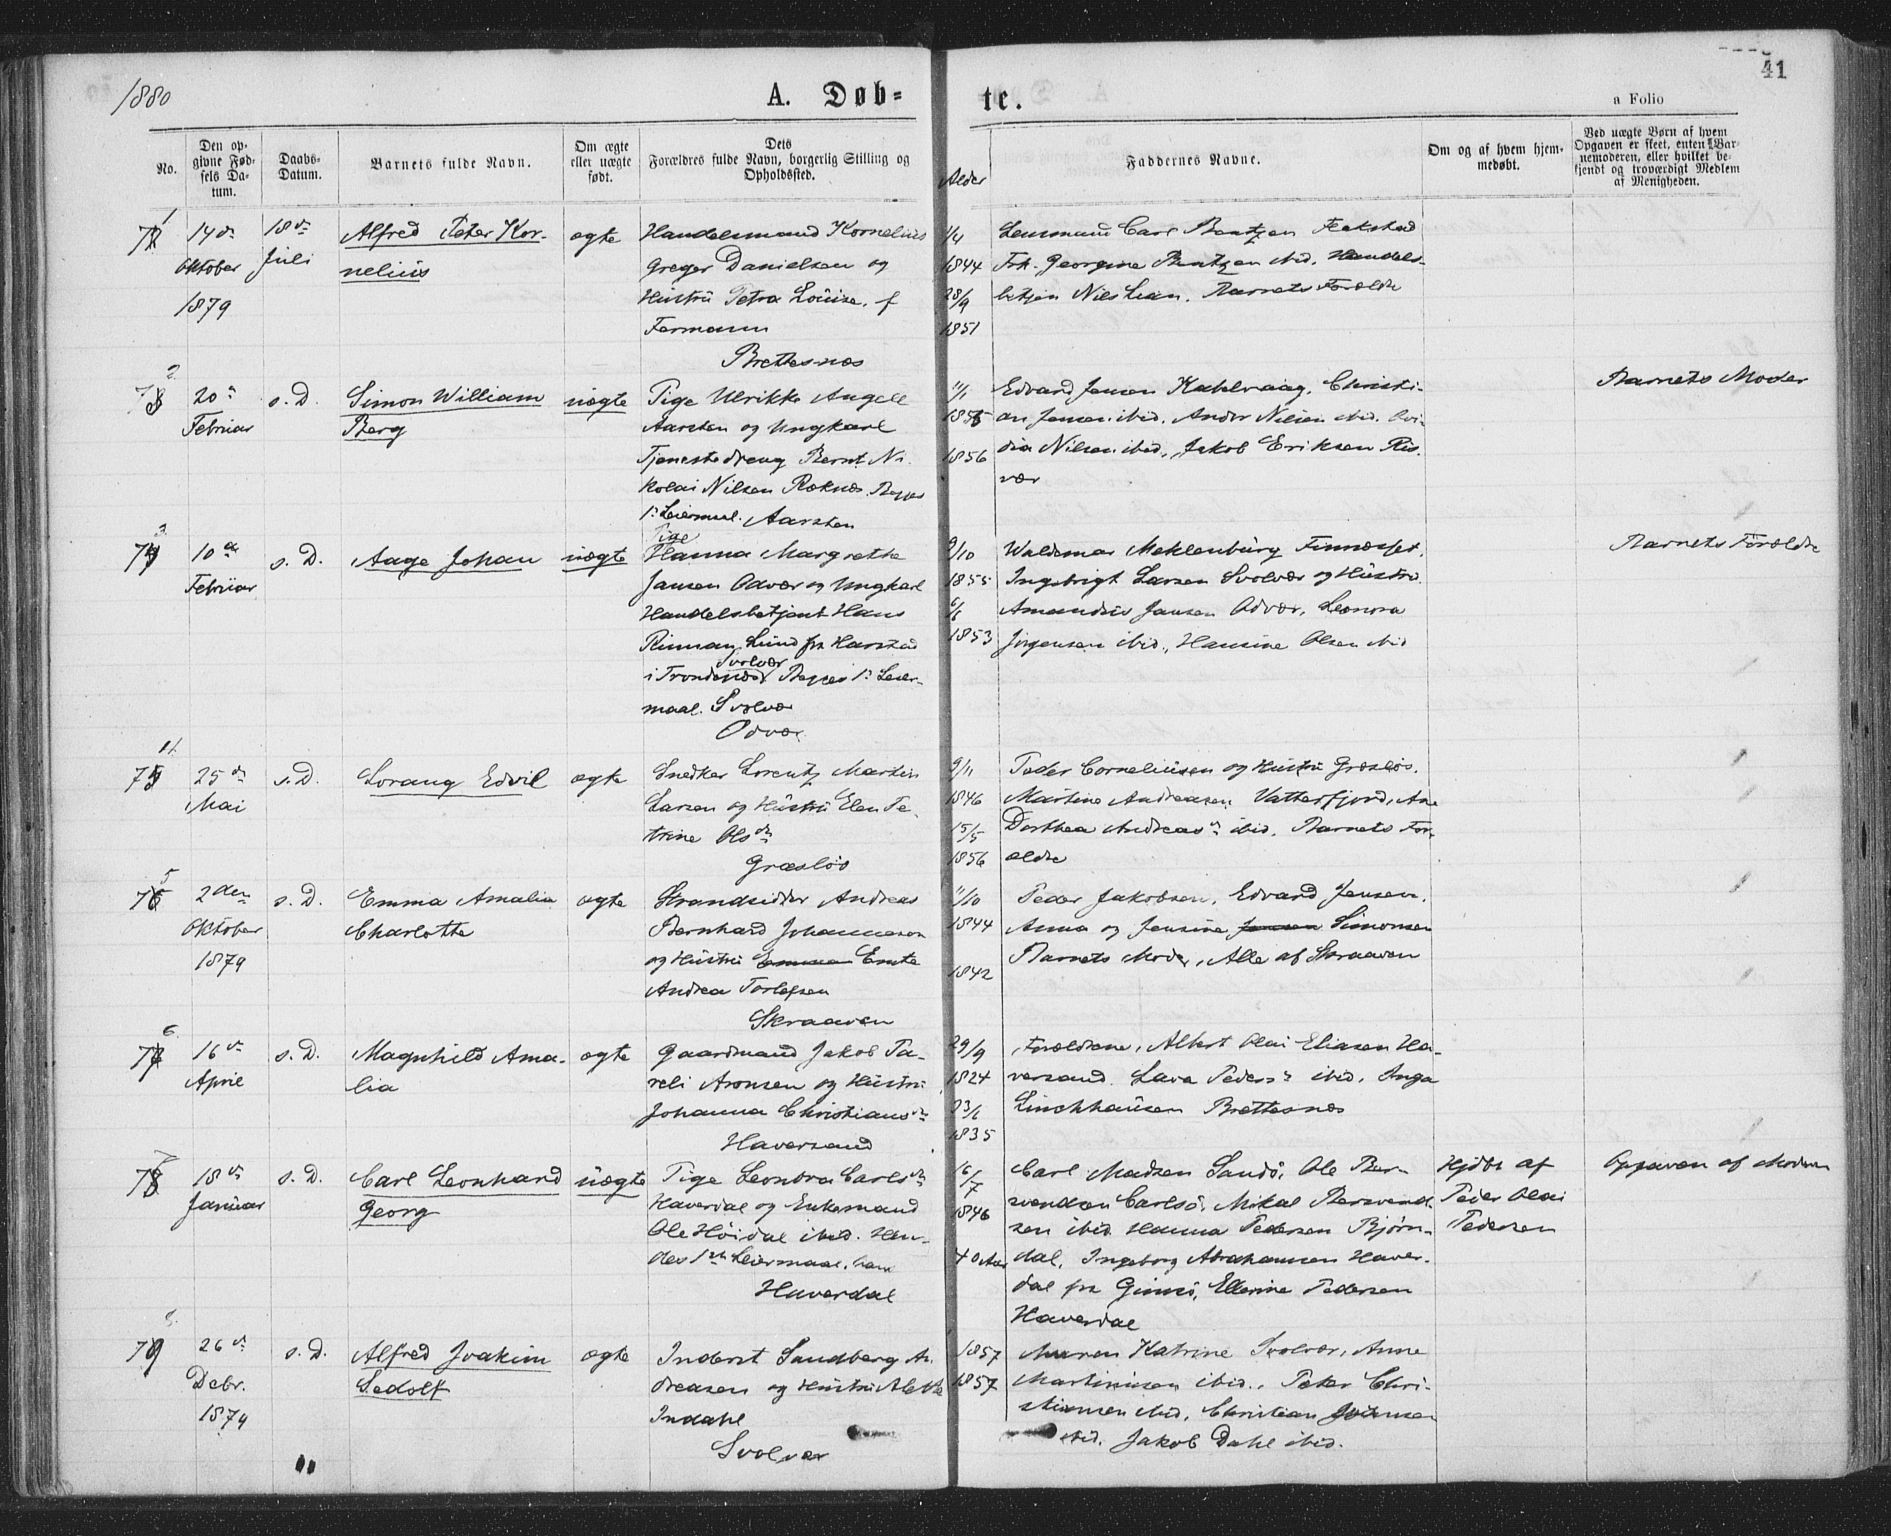 1880
A. Døb=
te.
41
a Folio
No.
Den op-
givne Fød-
sels Da-
tum.
Daabs-
Datum.
Barnets fulde Navn.
Om ægte
eller uægte
født.
Dets
Forældres fulde Navn, borgerlig Stilling og
Opholdssted.
Alder
Faddernes Navne.
Om og af hvem hjem-
medøbt.
Ved uægte Børn af hvem
Opgaven er skeet, enten Bar-
nemoderen, eller hvilket be-
kjendt og troværdigt Medlem
af Menigheden.
71
14de
Oktober
1879
18de
Juli
Alfred Peter Kor-
nelius
ægte
Handelsmand Kornelius
Greger Danielsen og
Hustru Petra Louise, f
Fermann
Brettesnæs
1/4
1844
28/9
1851
Lensmand Carl Bentzen
Frk. Georgine Bentzen ibid. Handels-
betjen Nils Lean. Barnets Forældre
72
20de
Februar
s. D.
Simon William
Berg
uægte
Pige Ulrikke Angell
Aarsten og Ungkarl
Tjenestedreng Bernt Ni-
kolai Nilsen Røknes. Begges
1ste Leiermaal. Aarsten
11/1
1856
Edvard Jensen Kahlvaag. Christi-
an Jensen ibid. Ander Nilsen ibid. Ovi-
dia Nilsen ibid., Jakob Eriksen Ris-
vær
Barnets Moder
73
10de
Februar
s. D.
Aage Johan
uægte
Pige
Hanna Margrethe
Jansen Odvær og Ungkarl
Handelsbetjent Hans
Rinman Lund fra Harstad
Svolvær
i Trondenæs Begges 1ste Leier-
maal. Svolvær
Odvær
9/10
1855
6/6
1853
Waldemar Meklenburg Finnæsset.
Ingebrigt Larsen Svolvær og Hustru.
Amandus Jansen Odvær, Leonora
Jørgensen ibid., Hansine Olsen ibid
Barnets Forældre
74
25de
Mai
s. D.
Lorang Edvil
ægte
Snedker Lorentz Martin
Larsen og Hustru Elen Pe-
trine Olsdr
Græsløs
9/11
1846
15/5
1856
Peder Corneliusen og Hustru Græsløs.
Martine Andreasen Vatterfjord, Ane
Dorthea Andreasdr ibid. Barnets For-
ældre
75
2den
Oktober
1879
s. D.
Emma Amalia
Charlotte
ægte
Strandsidder Andreas
Bernhard Johannesen
og Hustru Emma Emte
Andrea Torlefsen
Skraaven
11/10
1844
1842
Peder Jakobsen, Edvard Jensen,
Anna og Jensine Jensen Simonsen
Barnets Moder, Alle af Skraaven
76
16de
April
s. D.
Magnhild Ama-
lia
ægte
Gaardmand Jakob Pa-
veli Aronsen og Hustru
Johanna Christiansdr
Haversand
29/9
1824
23/6
1835
Forældrene, Albert Olai Eliasen Ha-
versand. Lava Pedersdr ibid. Inga
Linchhausen Brettesnæs
77
18de
Januar
s. D.
Carl Leonhard
Georg
uægte
Pige Leonora Carlsdr
Haverdal og Enkemand
Ole Høidal ibid. Hen-
des 1ste Leiermaal. hans
Haverdal
6/7
1846
40 Aar
Carl Madsen Sandø, Ole Ber-
wendsen Carlsø, Mikal Berwend-
sen ibid. Hanna Pedersen Bjørn-
dal, Ingeborg Abrahamsen Haver-
dal fra Gimsø, Ellerine Pedersen
Haverdal
Hjdbt af
Peder Olai
Pedersen
Opgaven af Moderen
78
26de
Debr.
1879
s. D.
Alfred Joakim
Sedolf
ægte
Inderst Sandberg An-
dreasen og Hustru Alette
Indahl
Svolvær
1857
1857
Maren Katrine Svolvær, Anne
Martinusen ibid., Peter Chri-
stiansen ibid, Christian Johnsen
ibid. Jakob Dahl ibid.